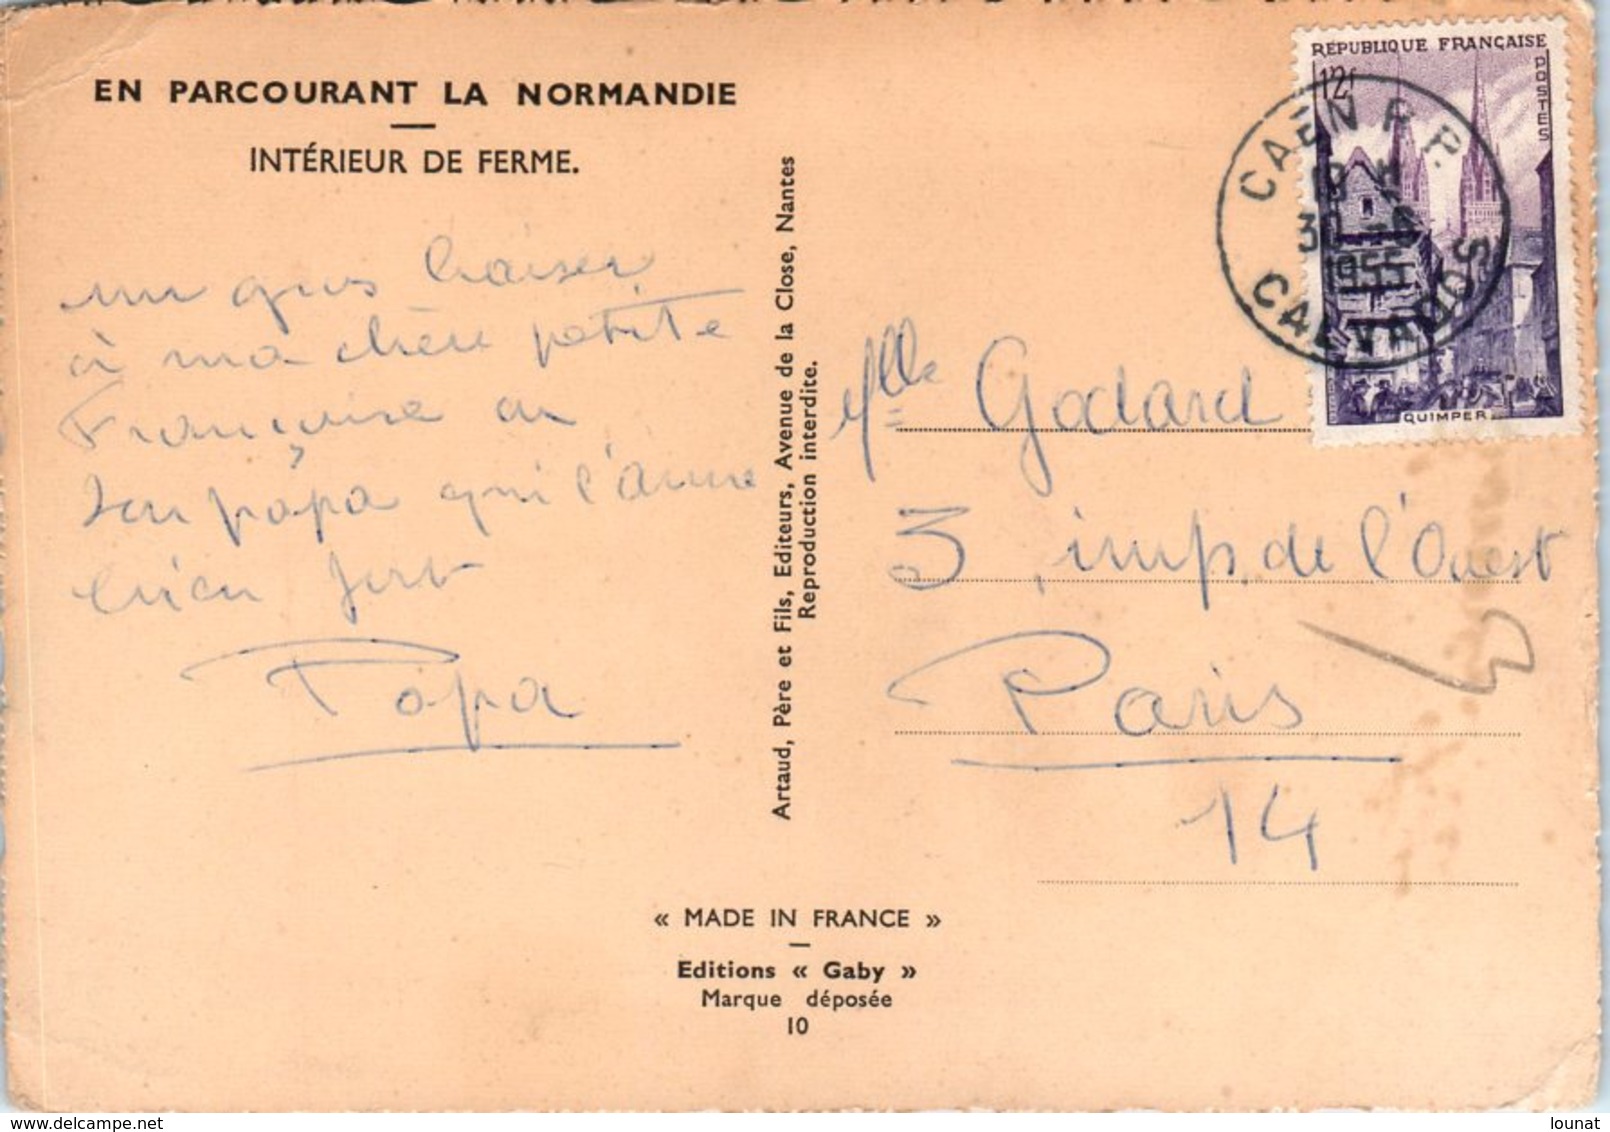 EN PARCOURANT LA NORMANDIE
INTÉRIEUR DE FERME.
un gros baiser
à ma chère petite
Françoise de
son papa qui l'aime
bien fort
Papa
Artaud, Père et Fils, Editeurs, Avenue de la Close, Nantes
Reproduction interdite.
RÉPUBLIQUE FRANÇAISE
POSTES
12f
QUIMPER
CAEN R.P.
19 H
30
1955
CALVADOS
Mlle Godard
3, imp. de l'Ouest
Paris
14
« MADE IN FRANCE »
Editions « Gaby »
Marque déposée
10
http://www.delcampe.net
lounat